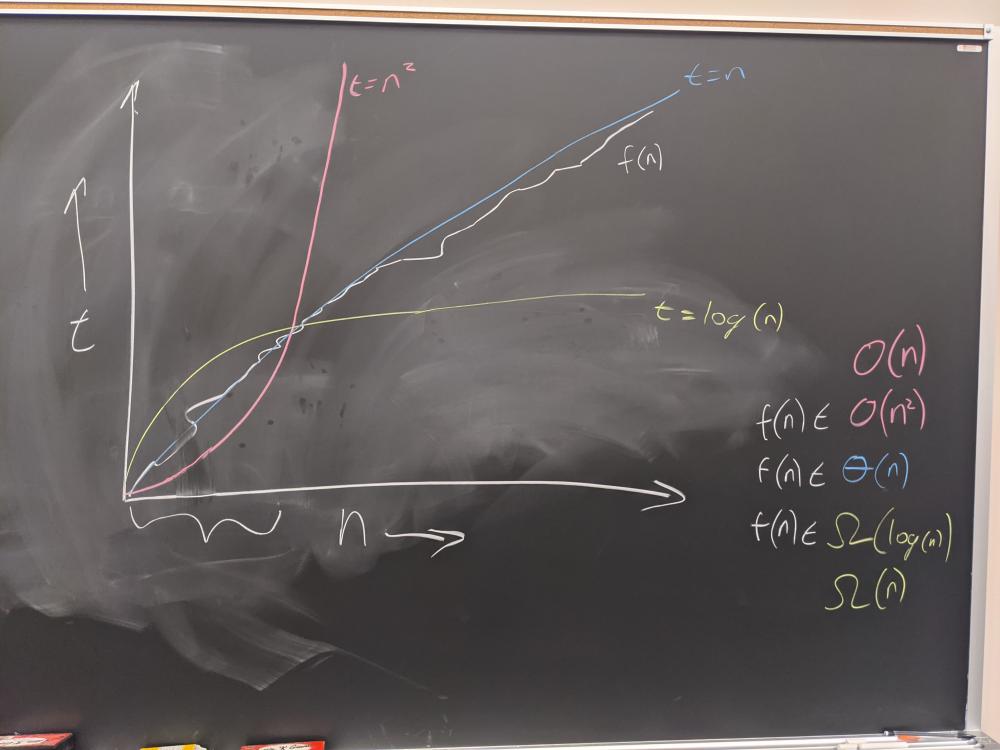 t=n²
t=n
f(n)
t
t=log(n)
n
O(n)
f(n) ∈ O(n²)
f(n) ∈ Θ(n)
f(n) ∈ Ω(log(n))
Ω(n)